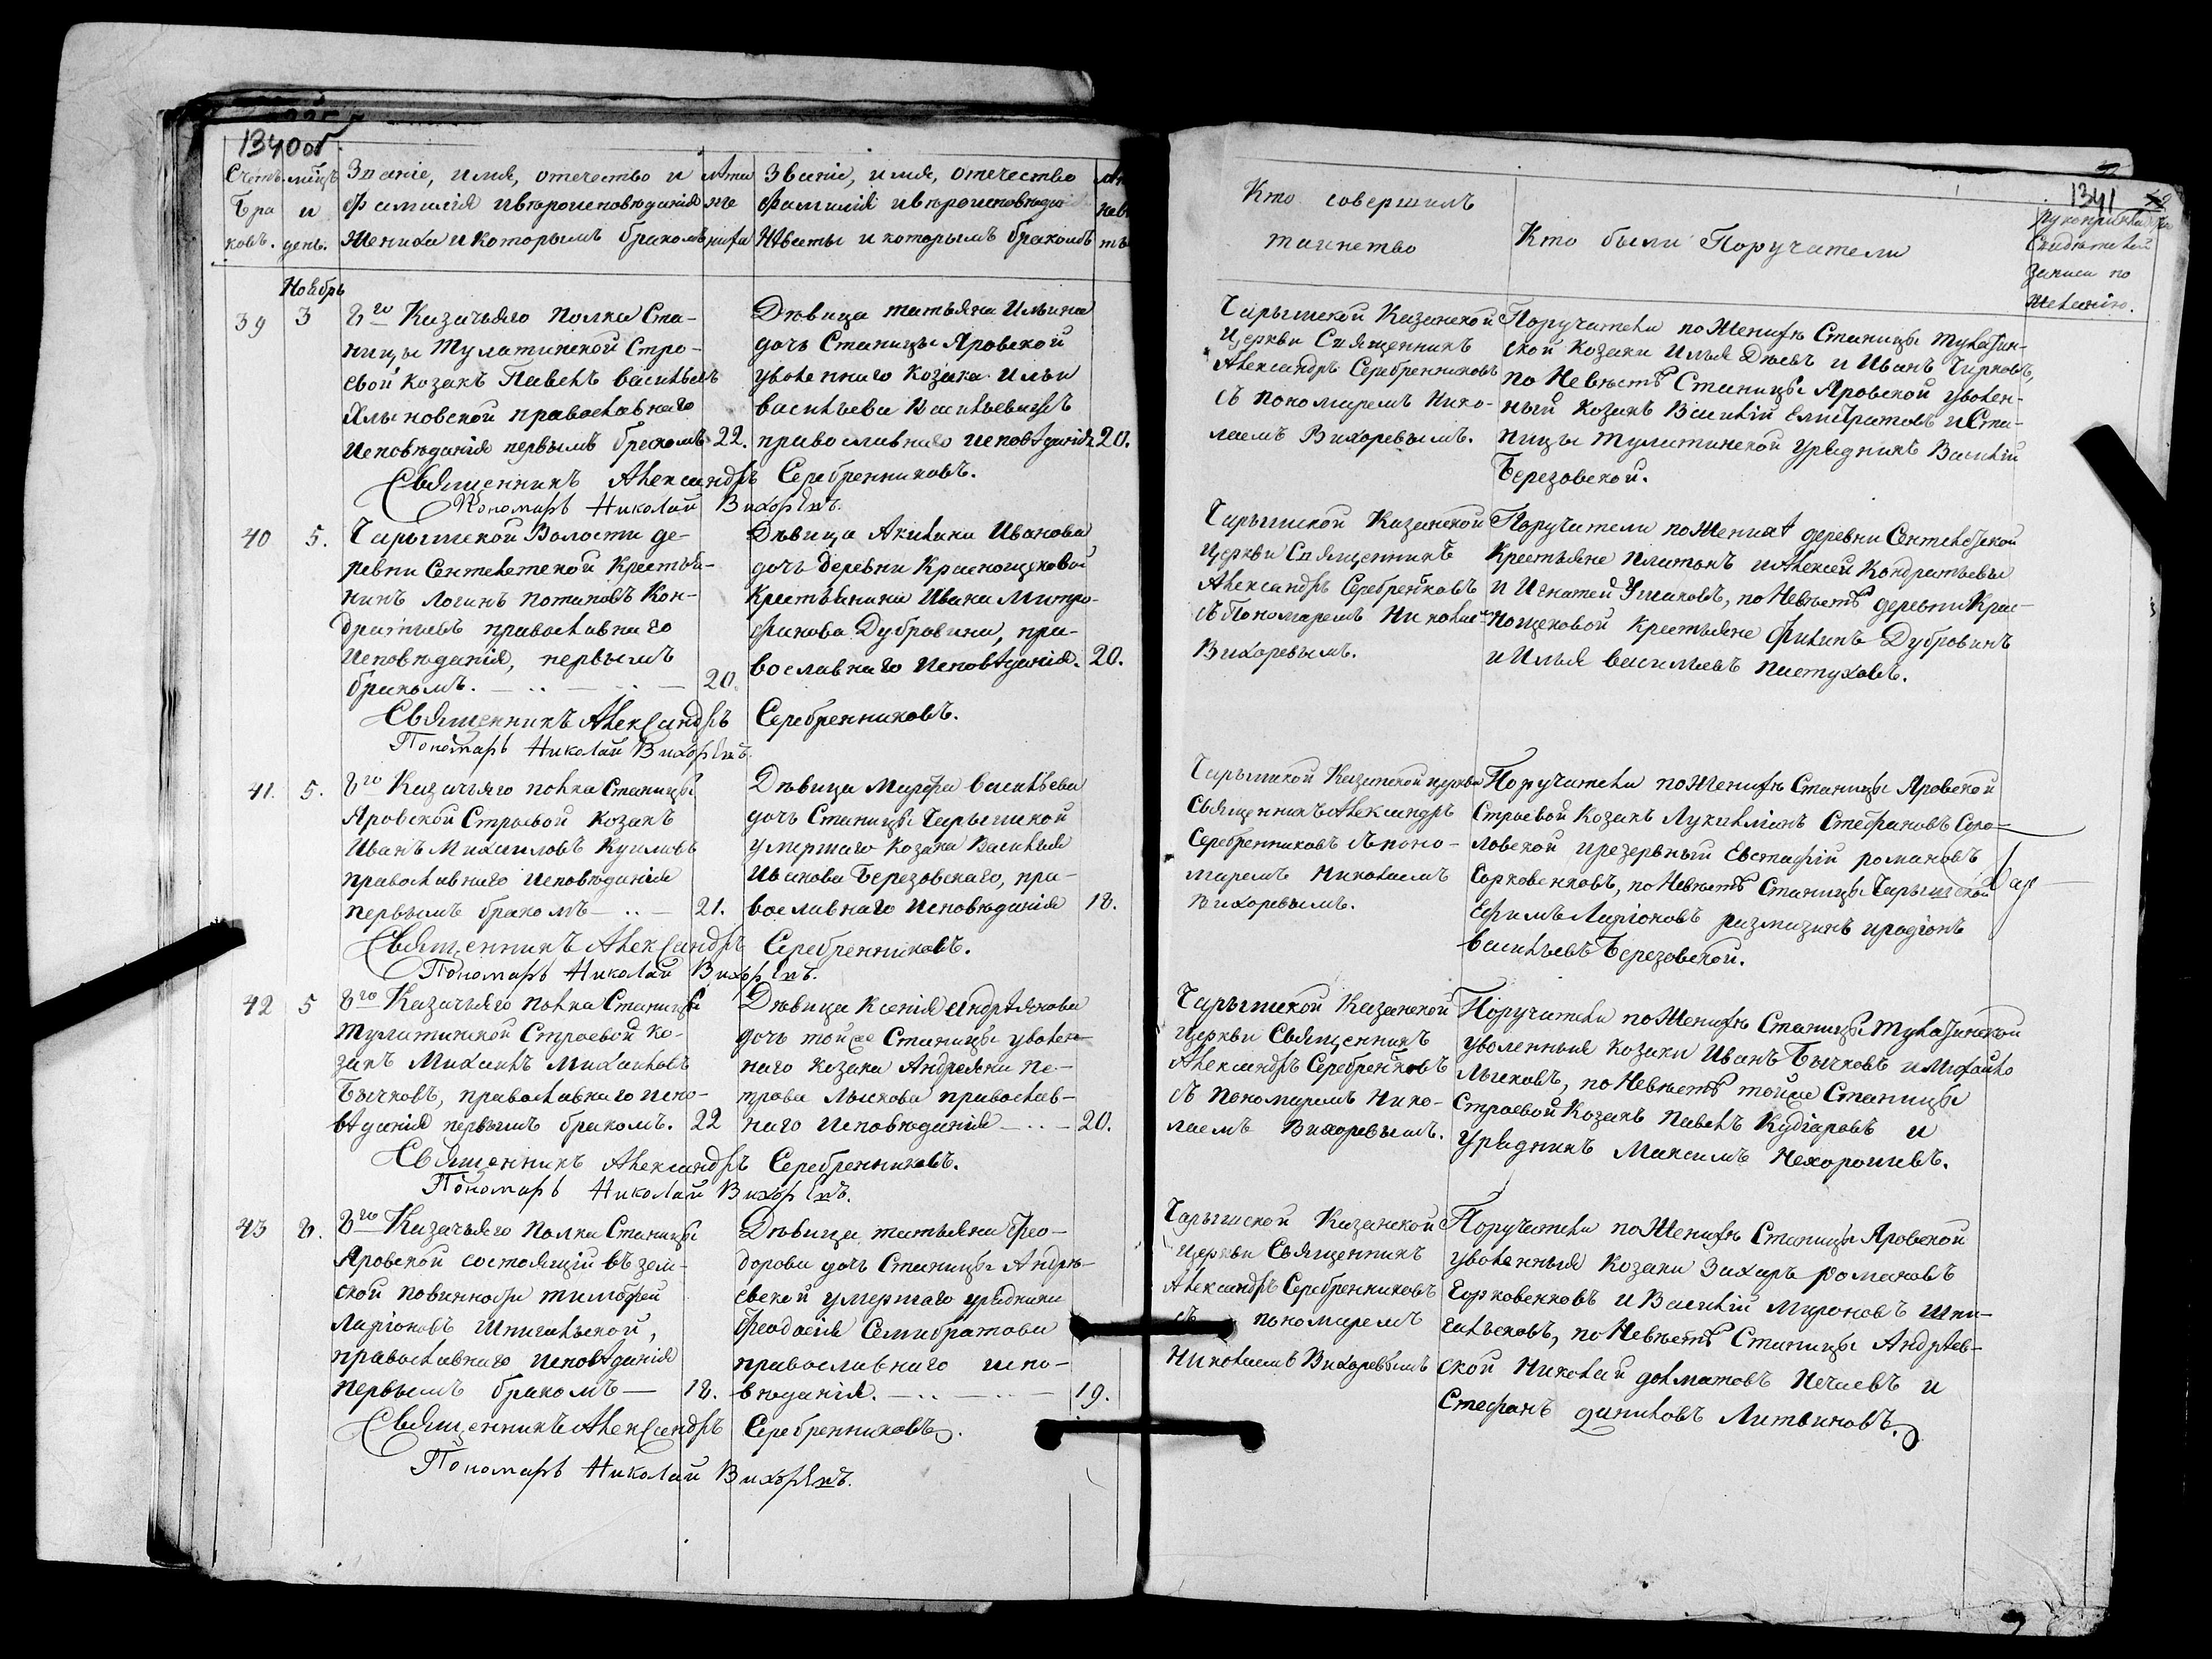 1340 об.
Счетъ мѣсцъ Званіе, имя, отечество и лѣта Званіе, имя, отечество
бра и фамилія и вѣроисповѣданія же фамилія и вѣроисповѣда
ковъ. день. жениха и которымъ бракомъ ниха Невѣсты и которымъ бракомъ
Ноябрь
39 3 8го Казачьяго полка Ста-
ницы Тулатинской Стро-
евой козакъ Павелъ Васильевъ
православнаго
Исповѣданія первымъ бракомъ 22.
Дѣвица Татьяна Ильина
дочь Станицы Яровской
уволеннаго козака Ильи
Васильева
православнаго исповѣданія 20.
Священникъ Александръ Серебренниковъ.
Пономарь Николай Вихоревъ.
40 5. Чарышской Волости де-
ревни Сентелетской Крестья-
нинъ Логинъ Потаповъ Кон-
дратьевъ православнаго
Исповѣданія, первымъ
бракомъ. 20.
Дѣвица Акилина Иванова
дочь деревни Краснощековой
Крестьянина Ивана Митро-
фанова Дубровина, пра-
вославнаго Исповѣданія. 20.
Священникъ Александръ Серебренниковъ.
Пономарь Николай Вихоревъ.
41. 5. 8го Казачьяго полка Станицы
Яровской Строевой козакъ
Иванъ Михаиловъ
православнаго исповѣданія
первымъ бракомъ 21.
Дѣвица Марфа Васильева
дочь Станицы Чарышской
умершаго козака Василья
Иванова Березовскаго, пра-
вославнаго Исповѣданія 18.
Священникъ Александръ Серебренниковъ.
Пономарь Николай Вихоревъ.
42 5 8го Казачьяго полка Станицы
Тулатинской Строевой ко-
закъ Михаилъ Михаиловъ
Бычковъ, православнаго испо-
вѣданія первымъ бракомъ. 22
Дѣвица Ксенія Андрѣянова
дочь тойже Станицы уволен-
наго козака Андреяна Пе-
трова Лыскова православ-
наго Исповѣданія 20.
Священникъ Александръ Серебренниковъ.
Пономарь Николай Вихоревъ.
43 8. 8го Казачьяго полка Станицы
Яровской состоящій въ зем-
ской повинности Тимофей
Ларіоновъ Шпигальской,
православнаго исповѣданія
первымъ бракомъ 18.
Дѣвица Татьяна Фео-
дорова дочь Станицы Андрѣ-
евской умершаго урядника
Феодосія Семибратова
православнаго испо-
вѣданія. 19.
Священникъ Александръ Серебренниковъ.
Пономарь Николай Вихоревъ.
1341
Кто совершилъ
таинство
Кто были Поручатели
Свидѣтелей
записи по
желанію.
Чарышской Казанской
Церкви Священникъ
Александръ Серебренниковъ
съ пономаремъ Нико-
лаемъ Вихоревымъ.
Поручатели по Женихѣ Станицы Тулатин-
ской козаки Илья Дѣевъ и Иванъ Чирковъ,
по Невѣстѣ Станицы Яровской уволен-
ный козакъ Василій Елистратовъ и Ста-
ницы Тулатинской Урядникъ Василій
Березовской.
Чарышской Казанской
Церкви Священникъ
Александръ Серебренниковъ
съ Пономаремъ Николаемъ
Вихоревымъ.
Поручатели по Женихѣ деревни Сентелетской
Крестьяне Платонъ и Алексей Кондратьевы
и Игнатей Ушаковъ, по Невѣстѣ деревни Крас-
нощековой Крестьяне Филипъ Дубровинъ
и Илья Васильевъ Пастуховъ.
Чарышской Казанской церкви
Священникъ Александръ
Серебренниковъ съ поно-
маремъ Николаемъ
Вихоревымъ.
Поручатели по Женихѣ Станицы Яровской
Строевой Козакъ Лукиліянъ Стефановъ Соро-
ловской и резервный Евстафій Романовъ
Горковенковъ, по Невѣстѣ Станицы Чарышской
Ефимъ Ларіоновъ Размазинъ и Родіонъ
Васильевъ Березовской.
Чарышской Казанской
Церкви Священникъ
Александръ Серебренниковъ
съ пономаремъ Нико-
лаемъ Вихоревымъ.
Поручатели по Женихѣ Станицы Тулатинской
уволенныя козаки Иванъ Бычковъ и Михайло
Лысковъ, по Невѣстѣ тойже Станицы
Строевой Козакъ Павелъ Кудіаровъ и
Урядникъ Максимъ Нехорошевъ.
Чарышской Казанской
Церкви Священникъ
Александръ Серебренниковъ
съ пономаремъ
Николаемъ Вихоревымъ
Поручатели по Женихѣ Станицы Яровской
уволенныя козаки Захаръ Романовъ
Горковенковъ и Василій Мироновъ Шпи-
гальсковъ, по Невѣстѣ Станицы Андрѣев-
ской Николай Долматовъ Нечаевъ и
Стефанъ Даниловъ Литвиновъ.